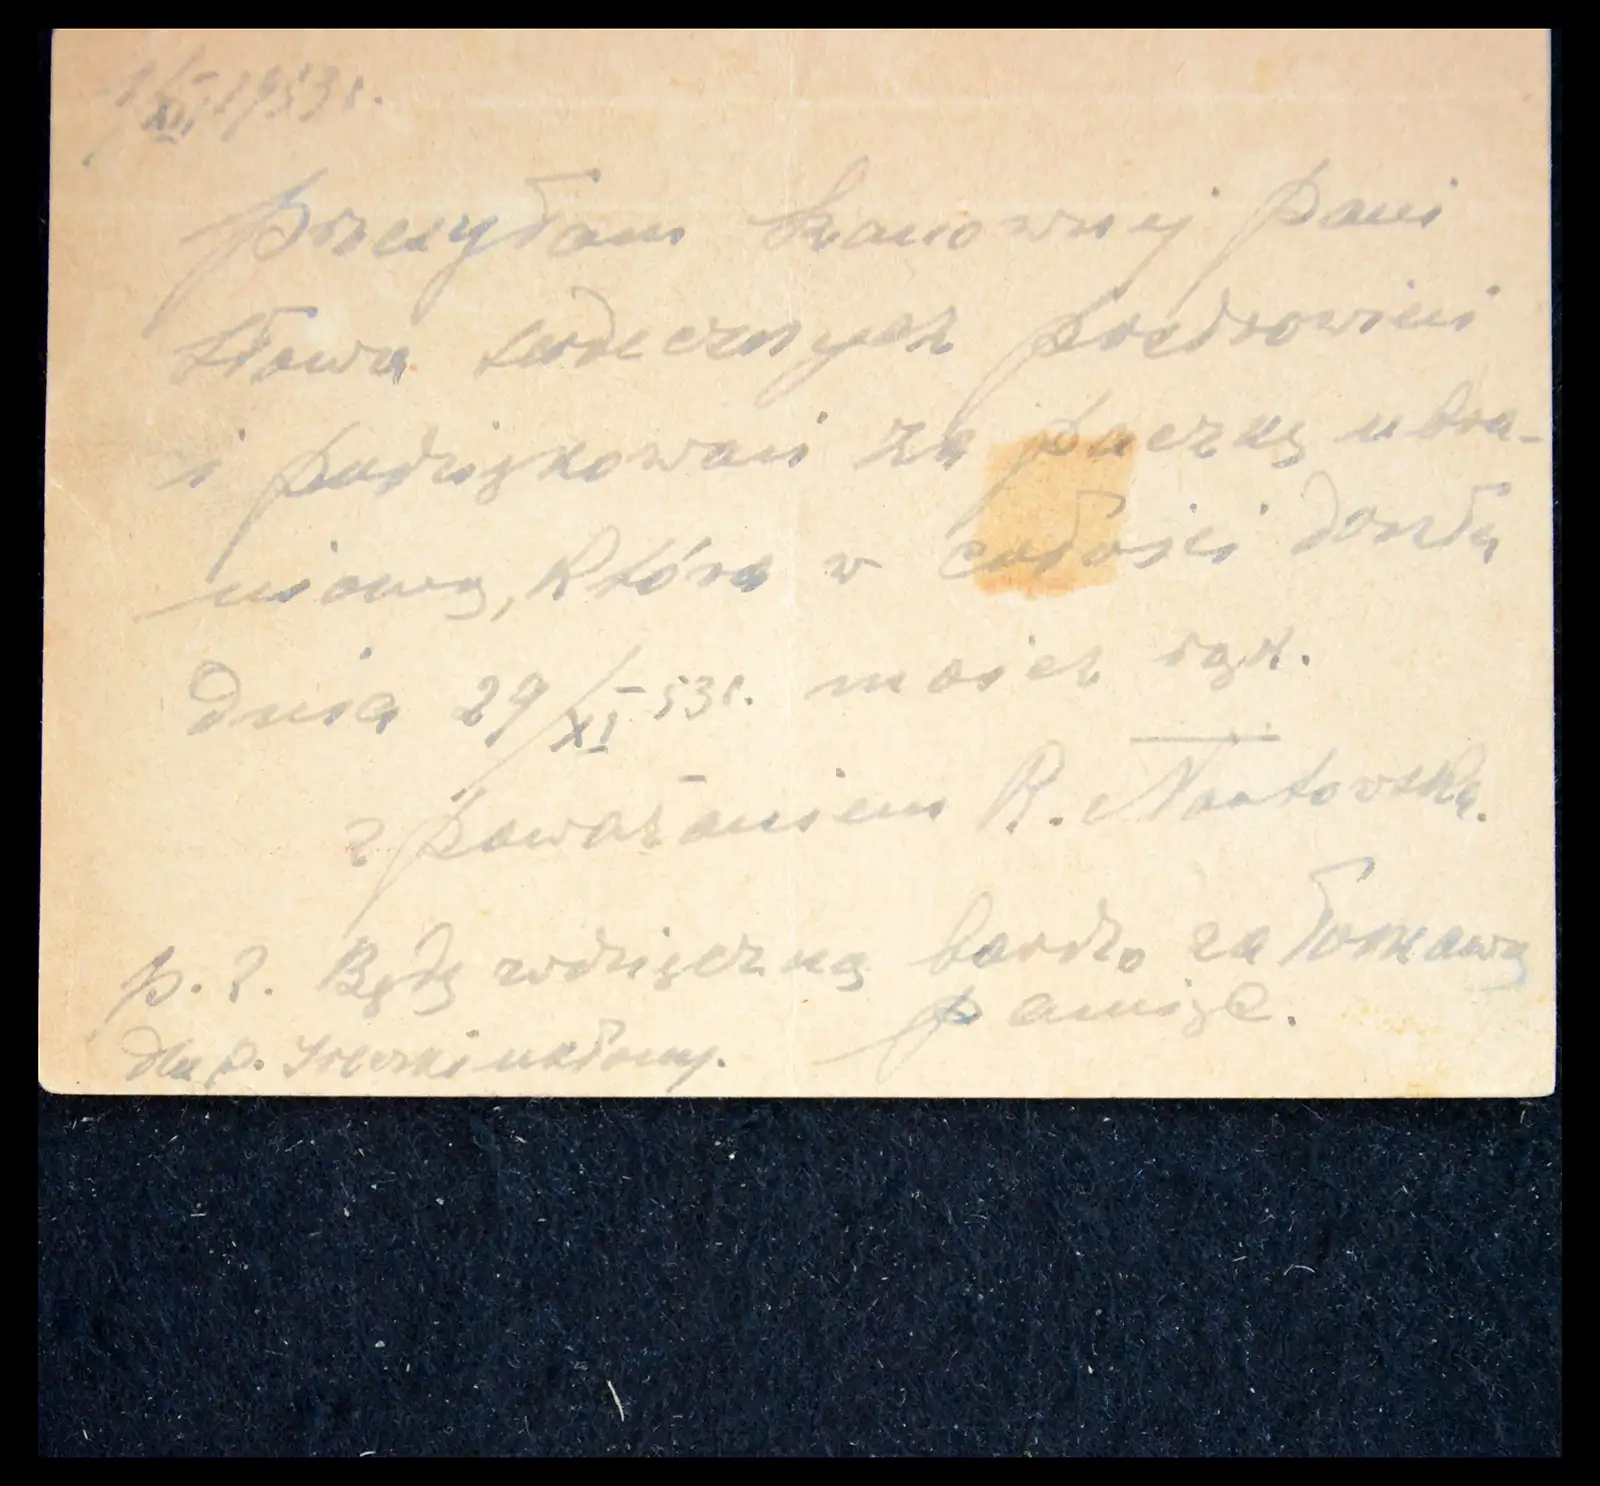 1/XII 1953 r.
Przesyłam Szanownej Pani
słowa serdecznych pozdrowień
i podziękowań za paczkę ubra-
niową, która w całości doszła
dnia 29/XI 53 r. moich rąk.
z poważaniem R. Nartowska.
p.s. Będę wdzięczną bardzo za
pamięć.
dla p.